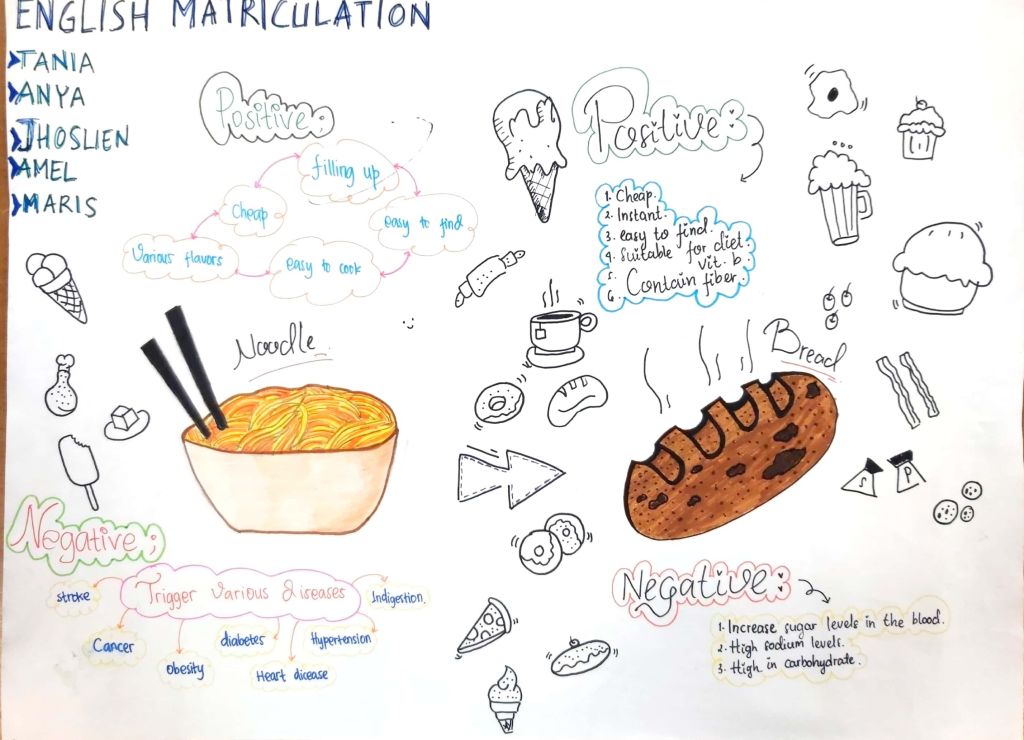 ENGLISH MATRICULATION
TANIA
ANYA
JHOSLIEN
AMEL
MARIS
Positive:
filling up
Cheap
easy to find
Various flavors
easy to cook
Noodle
Negative:
Trigger Various Diseases
stroke
Indigestion
Cancer
diabetes
Hypertension
Obesity
Heart dicease
Positive:
1. Cheap.
2. Instant.
3. easy to find.
4. Suitable for diet.
5. vit. b
6. Contain fiber.
Bread
S P
Negative:
1. Increase sugar levels in the blood.
2. High sodium levels.
3. High in carbohydrate.